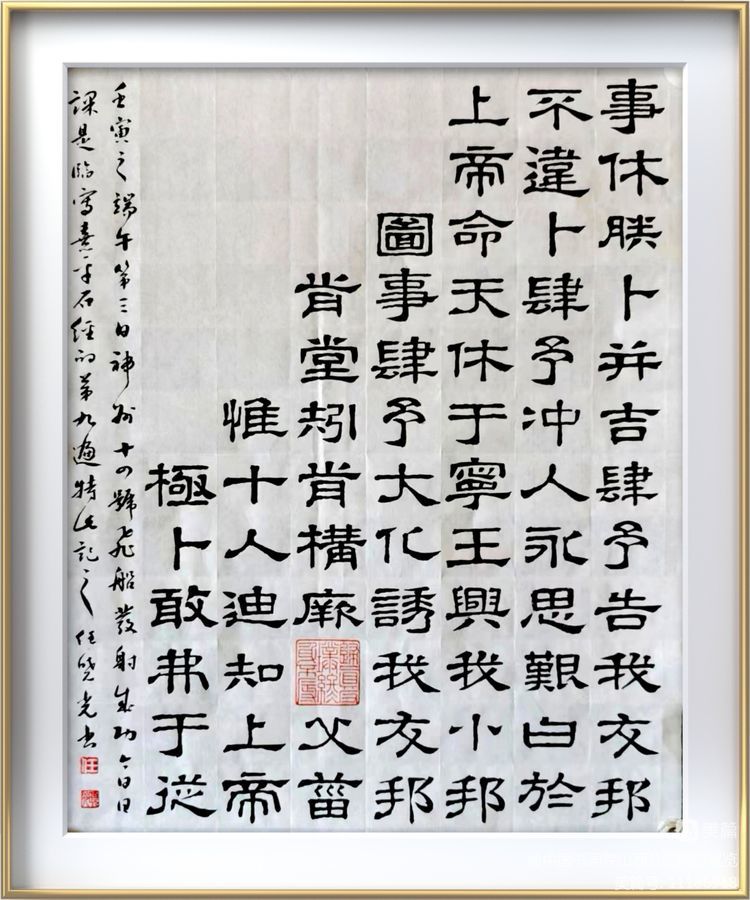 事休朕卜并吉肆予告我友邦
不違卜肆予冲人永思艱曰於
上帝命天休于寧王興我小邦
圖事肆予大化誘我友邦
肯堂矧肯構厥父菑
惟十人迪知上帝
極卜敢弗于從
壬寅之端午第三日神舟十四號飛船發射成功今日日
課是臨寫熹平石經的第九遍特此記之任曉光書
任
美篇